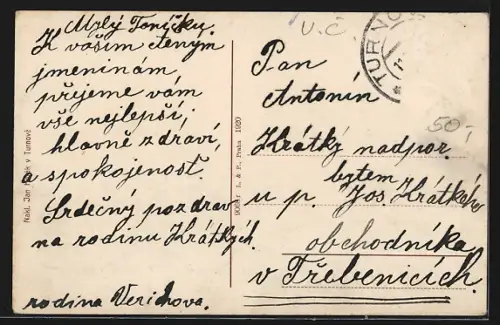 Milý Toníčku.
K vašim cteným
jmeninám,
přejeme vám
vše nejlepší,
hlavně zdraví,
a spokojenost.
Srdečný pozdrav
na rodinu Krátkých.
rodina Verichova.
Nakl. Jan v Turnově
L. & P., Praha 1920
U.Č.
TURNO
50,-
Pan
Antonín
Krátký nadpor.
bytem
u p. Jos. Krátkého
obchodníka
v Třebenicích.